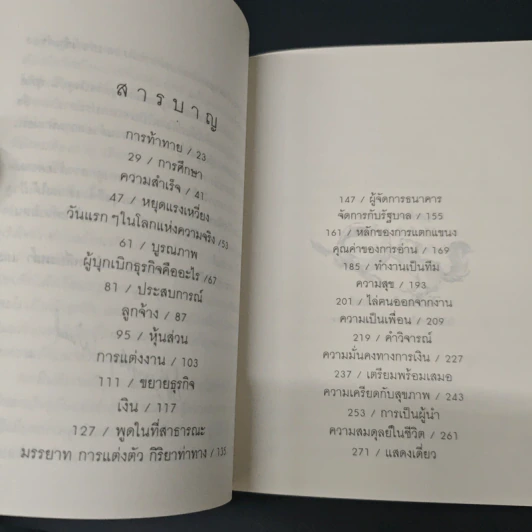 สารบาญ
การท้าทาย / 23
29 / การศึกษา
ความสำเร็จ / 41
47 / หยุดแรงเหวี่ยง
วันแรก ๆ ในโลกแห่งความจริง / 53
61 / บูรณภาพ
ผู้บุกเบิกธุรกิจคืออะไร / 67
81 / ประสบการณ์
ลูกจ้าง / 87
95 / หุ้นส่วน
การแต่งงาน / 103
111 / ขยายธุรกิจ
เงิน / 117
127 / พูดในที่สาธารณะ
มรรยาท การแต่งตัว กิริยาท่าทาง / 135
147 / ผู้จัดการธนาคาร
จัดการกับรัฐบาล / 155
161 / หลักของการแตกแขนง
คุณค่าของการอ่าน / 169
185 / ทำงานเป็นทีม
ความสุข / 193
201 / ไล่คนออกจากงาน
ความเป็นเพื่อน / 209
219 / คำวิจารณ์
ความมั่นคงทางการเงิน / 227
237 / เตรียมพร้อมเสมอ
ความเครียดกับสุขภาพ / 243
253 / การเป็นผู้นำ
ความสมดุลย์ในชีวิต / 261
271 / แสดงเดี่ยว